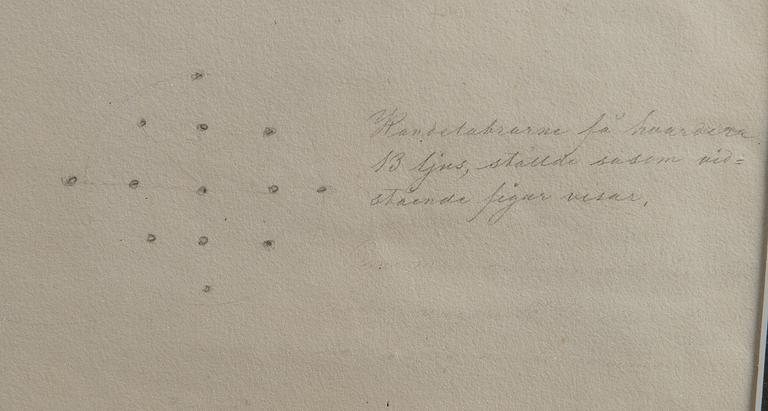 Kandelabrarne få hvardera
13 ljus, stälda såsom vid=
stående figur visar.